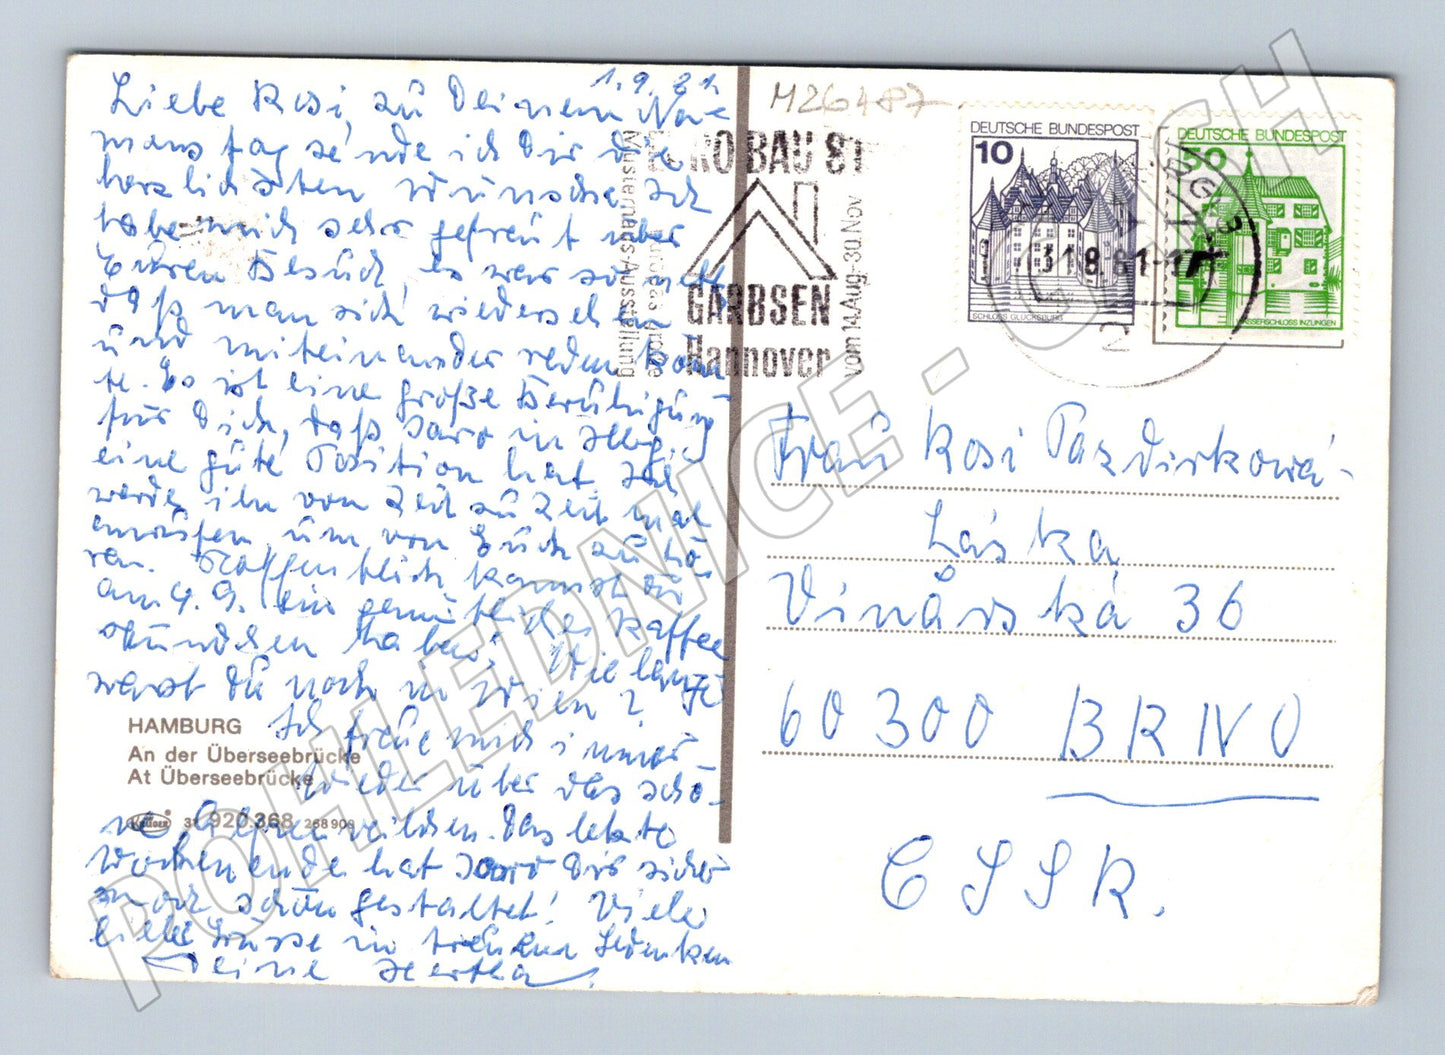 1.9.81.
Liebe Rosi, zu Deinem Na=
menstag sende ich Dir die
herzlichsten Wünsche. Ich
habe mich sehr gefreut über
Euren Besuch, es war so nett
daß man sich wiedersehen
und miteinander reden konn
te. Es ist eine große Beruhigung
für Dich, daß Jaro in
eine gute Position hat. Ich
werde ihn von Zeit zu Zeit mal
anrufen um von Euch zu hö
ren. Hoffentlich kannst du
am 4.9. ein gemütliches Kaffee
stündchen haben! Wie lange
warst Du noch in Wien?
Ich freue mich immer
wieder über das schö-
ne Das letzte
Wochenende hat Jaro Dir sicher
noch schön gestaltet! Viele
liebe Grüsse in treuem Gedenken
Deine Hertha.
HAMBURG
An der Überseebrücke
At Überseebrücke
KRÜGER 920.368 268906
M26487
RO BAU 81
Musterhaus-Ausstellung
GARBSEN
Hannover
vom 14.Aug.-30.Nov
DEUTSCHE BUNDESPOST
10
SCHLOSS GLÜCKSBURG
DEUTSCHE BUNDESPOST
50
WASSERSCHLOSS INZLINGEN
31.8.81-17
Frau Rosi Pazdirková-
Láska
Vinárská 36
60300 BRNO
CSSR.
POHLEDNICE - CASH